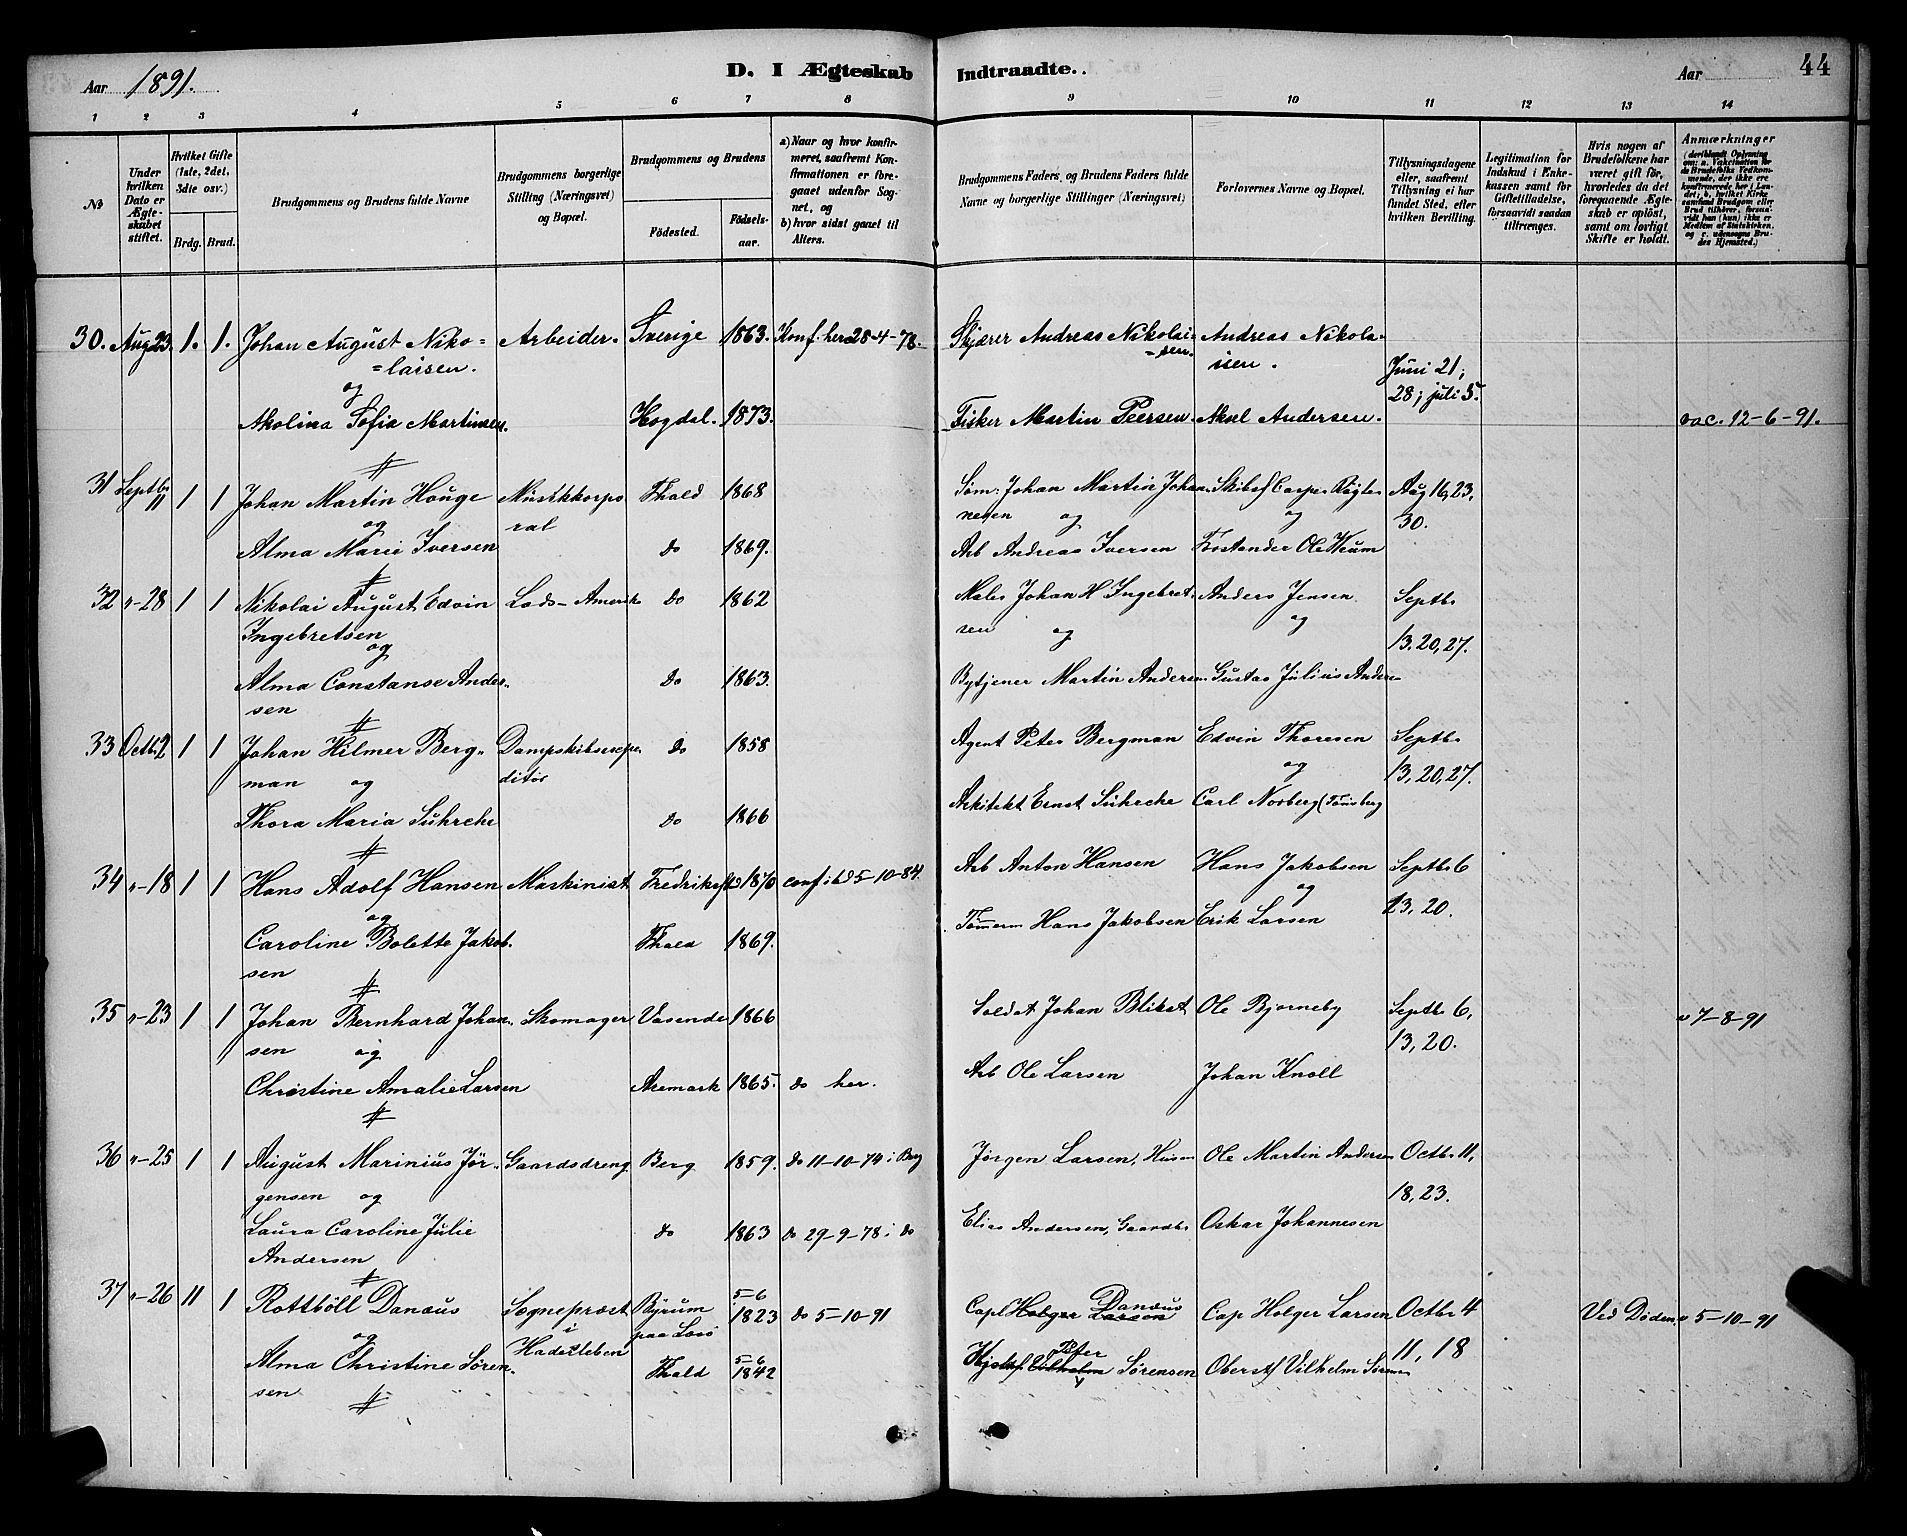 Aar 1891.
D. I Ægteskab
Indtraadte.
Aar
44
1 2 3 4 5 6 7 8 9 10 11 12 13 14
No
Under hvilken Dato er Ægteskabet stiftet.
Hvilket Gifte (1ste, 2det, 3die osv.)
Brdg. Brud.
Brudgommens og Brudens fulde Navne
Brudgommens borgerlige Stilling (Næringsvei) og Bopæl.
Brudgommens og Brudens
Fødested.
Fødselsaar.
a) Naar og hvor konfirmeret, saafremt Konfirmationen er foregaaet udenfor Sognet, og
b) hvor sidst gaaet til Alters.
Brudgommens Faders, og Brudens Faders fulde Navne og borgerlige Stillinger (Næringsvei)
Forlovernes Navne og Bopæl.
Tillysningsdagene eller, saafremt Tillysning ei har fundet Sted, efter hvilken Bevilling.
Legitimation for Indskud i Enkekassen samt for Giftetilladelse, forsaavidt saadan tiltrænges.
Hvis nogen af Brudefolkene har været gift før, hvorledes da det foregaaende Ægteskab er opløst, samt om lovligt Skifte er holdt.
Anmærkninger
30. Aug 23. 1. 1. Johan August Niko= Arbeider. Sverige 1863. Konf. her 28-4-78. Skjærer Andreas Nikolai= Andreas Nikola-
=laisen. =sen. isen.
og Juni 21; 28; juli 5.
Akolina Sofia Martinsen. Hogdal. 1873. Fisker Martin Peersen. Aksel Andersen. vac. 12-6-91.
31 Septbr 11 1 1 Johan Martin Houge Musikkorpo Fhald 1868 Søm: Johan Martin Johan- Skibsf Casper Røgler Aug 16, 23,
og ral nesen og og 30.
Alma Marie Iversen do 1869. Arb Andreas Iversen Ole Weum
32 "-28 1 1 Nikolai August Edvin Lods- Amerik Do 1862 Maler Johan H Ingebret- Anders Jensen Septbr
Ingebretsen og sen og og 13, 20, 27.
Alma Constanse Ander- Do 1863. Bytjener Martin Andersen Gustav Julius Anders-
sen
33 Octb. 2 1 1 Johan Hilmer Berg- Dampskibsexpe- do 1858 Agent Peter Bergman Edvin Thoresen Septbr
man og ditør og 13, 20, 27.
Thora Maria Suhrche do 1866 Arkitekt Ernst Suhrche Carl Norberg (Tønsberg
34 "-18 1 1 Hans Adolf Hansen Maskinist Fredriksstd 1870 conf i do 5-10-84. Arb Anton Hansen Hans Jakobsen Septbr 6
og og 13, 20.
Caroline Bolette Jakob- Fhald 1869. Tømerm Hans Jakobsen Erik Larsen
sen
35 "-23 1 1 Johan Bernhard Johan- Skomager Vasende 1866 Soldat Johan Blikst Ole Bjorneby Septbr 6, v 7-8-91
sen og 13, 20.
Christine Amalie Larsen Aremark 1865. do her. Arb Ole Larsen Johan Knoll
36 "-25 1 1 August Marinius Jør- Gaardsdreng Berg 1859. do 11-10-74 i Berg Jørgen Larsen, Husm Ole Martin Andersen Octbr 11,
gensen og 18, 23.
Laura Caroline Julie do 1863 do 29-9-78 i do Elias Andersen, Gaardbr Oskar Johannesen
Andersen
37 "-26 11 1 Rottböll Danæus Sogneprest Byrum 5-6 1823 do 5-10-91 Capt Holger Larsen Danæus Cap Holger Larsen Octbr 4 Ved Døden v 5-10-91
og i Hadersleben paa Læsø 11, 18
Alma Christine Søren- Fhald 5-6 1842 Vilhelm Peter Sørensen Oberstl Vilhelm Sørens
sen